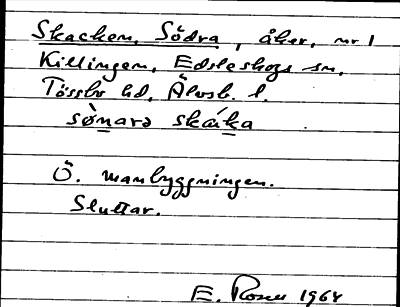 Skacken, Södra, åker, nr 1
Killingen, Edsleskogs sn,
Tössbo hd, Älvsb. l.
sø̀narə skáka
Ö. manbyggningen.
Sluttar.
E. Rosell 1964